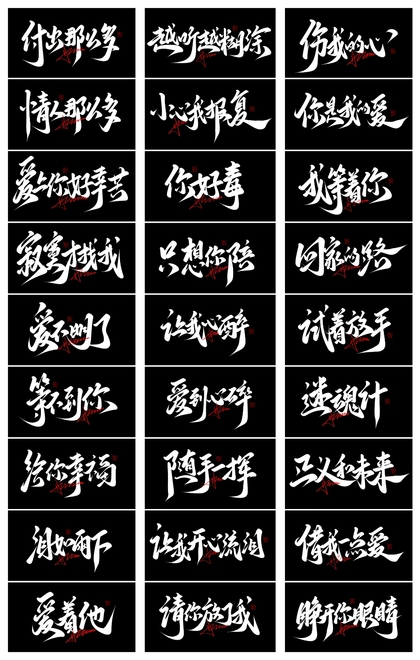 付出那么多
越听越糊涂
伤我的心
情人那么多
小心我报复
你是我的爱
爱上你好幸苦
你好毒
我等着你
寂寞才找我
只想你陪
回家的路
爱不明了
让我心醉
试着放手
等不到你
爱到心碎
迷魂计
给你幸福
随手一挥
正义和未来
泪如雨下
让我开心流泪
借我一点爱
爱着他
请你放了我
睁开你眼睛